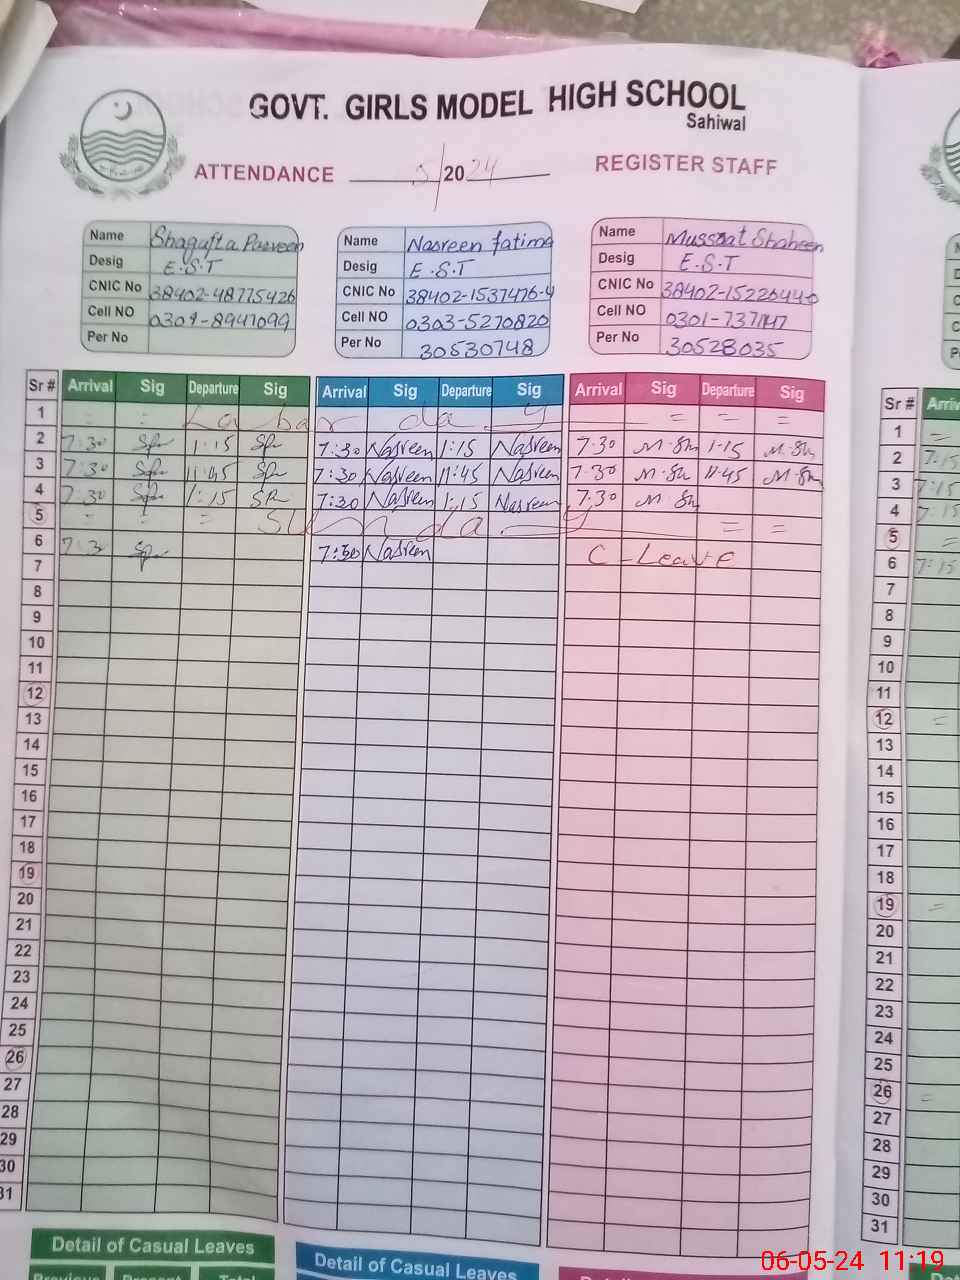 GOVT. GIRLS MODEL HIGH SCHOOL
Sahiwal
ATTENDANCE 5/2024 REGISTER STAFF
Name Shagufta Parveen
Desig E.S.T
CNIC No 38402-48775426
Cell NO 0304-8947099
Per No
Name Nasreen fatima
Desig E.S.T
CNIC No 38402-1537476-4
Cell NO 0303-5270820
Per No 30530748
Name Mussrat Shaheen
Desig E.S.T
CNIC No 38402-1522644-0
Cell NO 0301-7371147
Per No 30528035
Sr # Arrival Sig Departure Sig Arrival Sig Departure Sig Arrival Sig Departure Sig
1 = = Labar day = = =
2 7:30 1:15 7:30 Nasreen 1:15 Nasreen 7:30 M.Sh 1:15 M.Sh
3 7:30 11:45 7:30 Nasreen 11:45 Nasreen 7:30 M.Sh 11:45 M.Sh
4 7:30 1:15 7:30 Nasreen 1:15 Nasreen 7:30 M.Sh
5 = = = Sunday = =
6 7:3 7:30 Nasreen C-Leave
7
8
9
10
11
12
13
14
15
16
17
18
19
20
21
22
23
24
25
26
27
28
29
30
31
Detail of Casual Leaves
Detail of Casual Leaves
Previous Present Total
Sr # Arriv
1 =
2 7:15
3 7:15
4 7:15
5 =
6 7:15
7
8
9
10
11
12 =
13
14
15
16
17
18
19 =
20
21
22
23
24
25
26 =
27
28
29
30
31
06-05-24 11:19